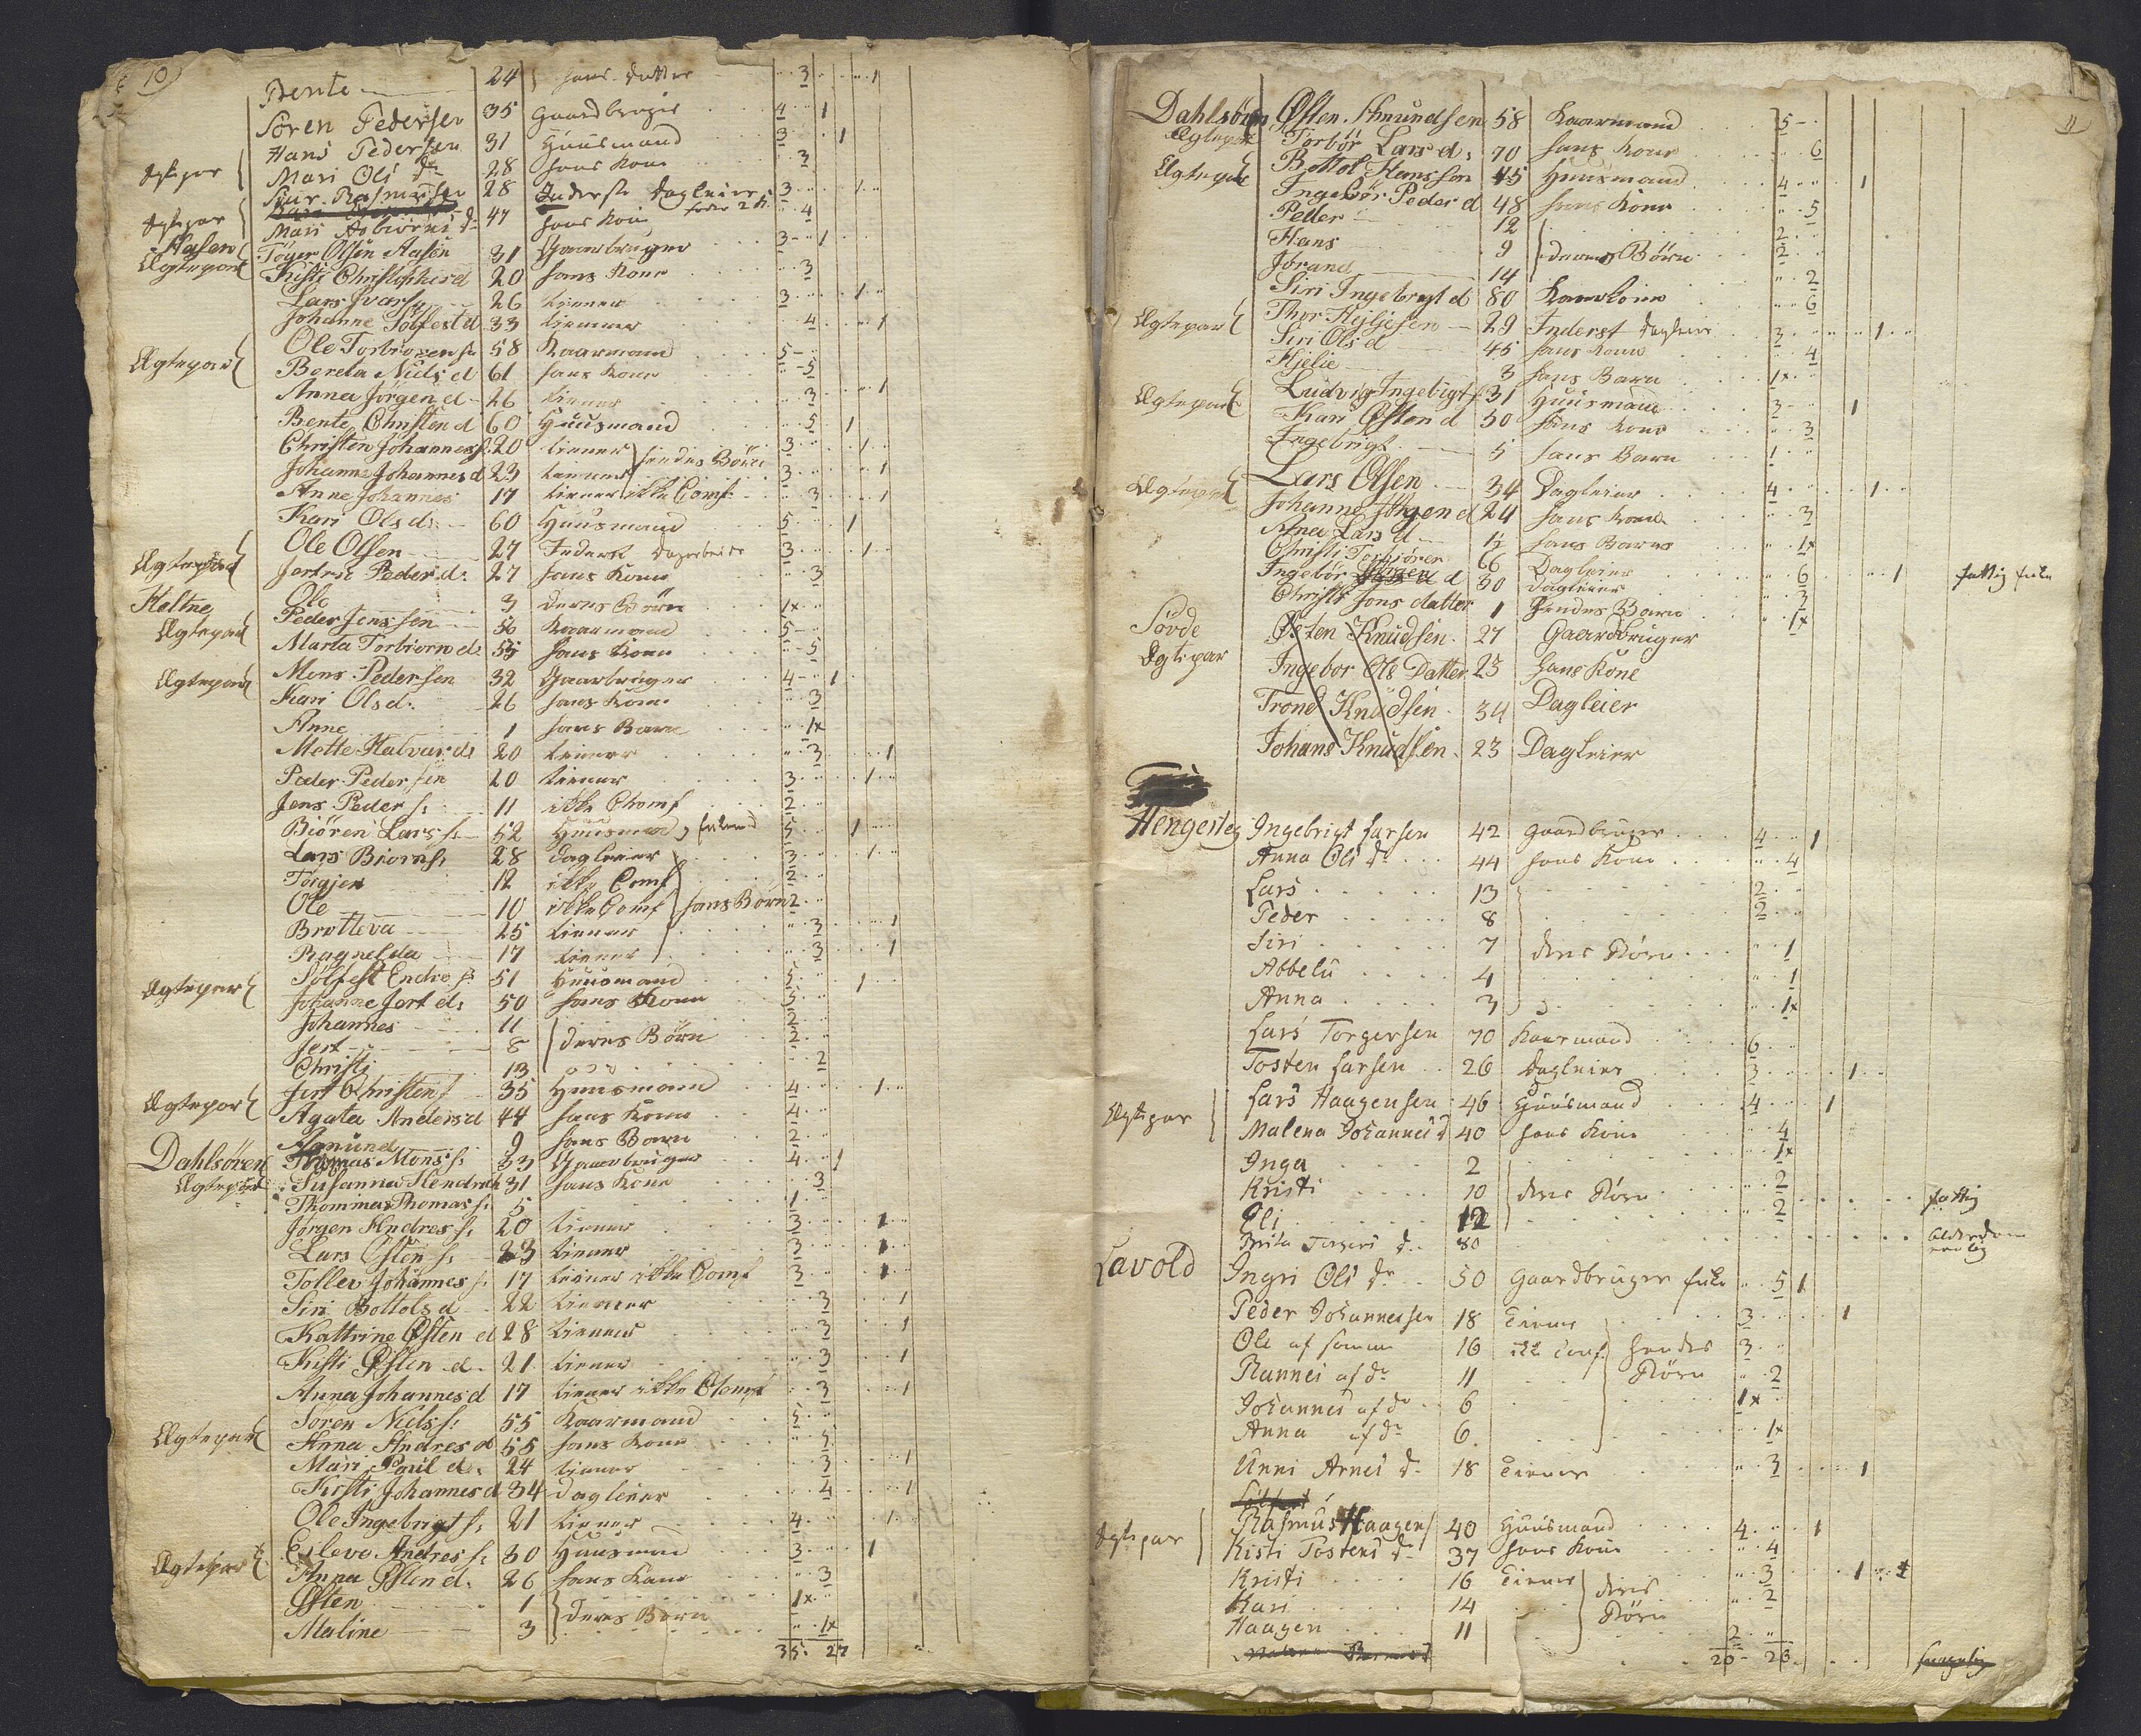 10
Bente 24 hans Datter 3 1
Søren Pedersen 35 Gaardbruger 4 1
Hans Pedersen 31 Huusmand 3 1
Egtepar Mari Ols dr 28 hans Kone 3
28 Inderste Dagleier 3 1
Egtepar Mari 47 hans Kone 4
Aasen Tøger Olsen Aasen 31 Gaarbruger 3 1
Ægtepar Kisti Christophers d 20 hans Kone 3
Lars Ivars 26 tiener 3 1
Johanne Solfest d 33 tienner 4 1
Ole Torbiørensn 58 Kaarmand 5
Ægtepar Bereta Niels d 61 hans Kone 5
Anna Jørgen d 26 tiener 3 1
Bente Christen d 60 Huusmand 5 1
Christen Johannes s. 20 tiener 3 1
Johanne Johannes d 23 tiener hendes Børn 3 1
Anne Johannes 17 tiener ikke Comf: 3 1
Kari Ols d: 60 Huusmand 5 1
Ole Olsen 27 Inderst Dagarbeider 3 1
Ægtepar Jertrue Peder d: 27 hans Kone 3
Ole 3 deres Børn 1x
Haltne Peder Jenssen 56 Kaarmand 5
Ægtepar Marta Torbiørn d: 55 hans Kone 5
Ægtepar Mons Pedersen 32 Gaarbruger 4 1
Kari Ols d: 26 hans Kone 3
Anne 1 hans Barn 1x
Mette Halvar d: 20 teiner 3 1
Peder Pedersen 20 tiener 3 1
Jens Peder s: 11 ikke Chomf 2
Biøren Lars s: 52 Huusmand, enkemd 5 1
Lars Biørn s: 28 dagleier 3 1
Torgjer 12 ikke Comf 2
Ole 10 ikke Comf hans Børn 2
Brotteva 25 tiener 3 1
Ragnelda 17 tiener 3 1
Solfest Endre s: 51 Huusmand 5 1
Ægtepar Johanne Jert d: 50 hans Kone 5
Johannes 11 2
Jert 8 deres Børn 2
Christi 13 2
Jert Christen s 35 Huusmand 4 1
Ægtepar Agata Anders d 44 hans Kone 4
Amund 9 hans Barn 2
Dahlsøren Thomas Mons s: 33 Gaarbruger 4 1
Ægtepar Susanna Hendrich 31 hans Kone 3
Thommas Thomas s: 5 1
Jørgen Andres s: 20 tiener 3 1
Lars Østen s: 23 tiener 3 1
Tollev Johannes s: 17 teiner ikke Comf 3 1
Siri Bottols d 22 tiener 3 1
Kattrine Østen d 28 tiener 3 1
Kisti Østen d. 21 tiener 3 1
Anna Johannes d 17 tiener ikke Chomf 3 1
Søren Niels s: 55 Kaarmand 5
Ægtepar Anna Andres d 55 hans Kone 5
Mari Poul d: 24 tiener 3 1
Kisti Johannes d 34 dagleier 4 1
Ole Ingebrigt s: 21 tiener 4 1
Eslevo Andres s: 30 Huusmand 3 1
Ægtepar Anna Østen d. 26 hans Kone 3
Østen 1 deres Børn 1x
Maline 3 1x
35. 27
11
Dahlsøren Østen Amundsen 58 Kaarmand 5
Ægtepar Torbør Lars d: 70 hans Kone 6
Ægtepar Bottol Hanssen 45 Huusmand 4 1
Ingebør Peder d 48 hans Kone 5
Peder 12 2
Hans 9 deres Børn 2
Jørand 14 2
Siri Ingebrigt d 80 Kaarkone 6
Ægtepar Thor Hjeljesen 29 Inderst Dagleier 3 1
Siri Ols d 45 hans Kone 4
Hjelje 3 hans Barn 1x
Ægtepar Ludvig Ingebrigt s 31 Huusmand 3 1
Kari Østen d 30 hans Kone 3
Ingebrigt 5 hans Barn 1
Ægtepar Lars Olsen 34 Dagleier 4 1
Johanne Jørgen d 24 hans Kone 3
Anna Lars d 1½ hans Barn 1x
Christi Torbiøren 66 Dagleier 6 1 fattig Enke
Ingebør d 30 Dagleier 3
Christi Jons datter 1 hendes Barn 1x
Søvde Østen Knudsen 27 Gaardbruger
Egtepar Ingebor Ols Datter 23 Hans Kone
Trond Knudsen 34 Dagleier
Johans Knudsen 23 Dagleier
Hengesteg Ingebrigt Larsen 42 Gaardbruger 4 1
Anna Ols dr 44 hans Kone 4
Lars 13 2
Peder 8 2
Siri 7 deres Børn 1
Abbelu 4 1
Anna 3 1x
Lars Torgersen 70 Kaarmand 6
Tosten Larsen 26 Dagleier 3 1
Egtepar Lars Haagensen 46 Huusmand 4 1
Malena Johannes d 40 hans Kone 4
Inga 2 1x
Kristi 10 deres Børn 2
Eli 12 2 fattig
Brita Torgers dr 80 alderdom
Lavold Ingri Ols dr 50 Gaardbruger Enke 5 1
Peder Johannessen 18 Tiener 3 1
Ole af samme 16 ikke Conf. hendes Børn 3
Rannei af do 11 2
Johannes af do 6 1x
Anna af do 6 1x
Unni Arnes d. 18 Tiener 3 1
Egtepar Rasmus Haagens 40 Huusmand 4 1
Kisti Tostens dr 37 hans Kone 4
Kristi 16 Tiener deres Børn 3 1
Kari 14 2
Haagen 11 2
20 23